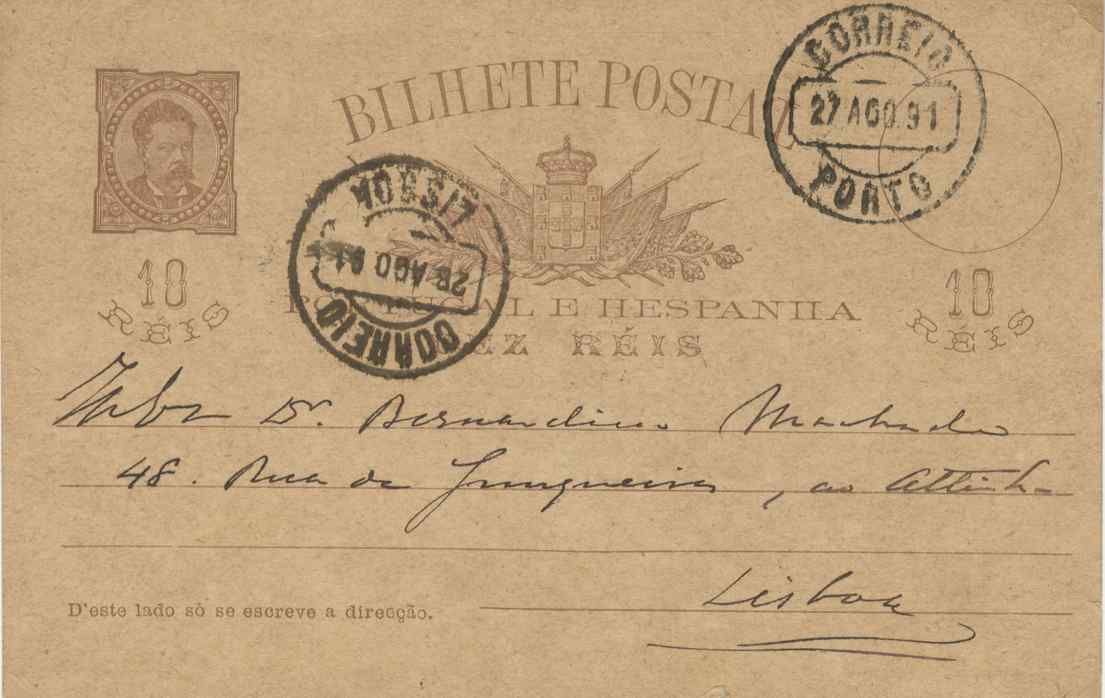 BILHETE POSTAL
CORREIO
27 AGO. 91
PORTO
LISBOA
28 AGO 91
CORREIO
10
RÉIS
PORTUGAL E HESPANHA
DEZ RÉIS
10
RÉIS
Dr. Bernardino Machado
48. Rua da Junqueira, ao
Lisboa
D'este lado só se escreve a direcção.